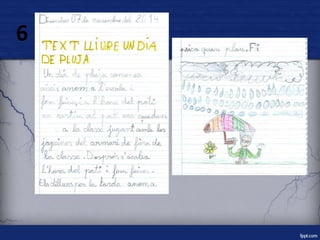 6
Divendres 07 de novembre del 2014
TEXT LLIURE UN DIA
DE PLUJA
Un dia de pluja comença
així; anem a l'escola i
fem feina, i a l'hora del pati
no sortim al pati ens quedem
a la classe jugant amb les
joguines del armari de fora de
la classe. Després s'acaba
l'hora del pati i fem feina.
Els dilluns per la tarda anem a
psico quan plou. Fi
fppt.com